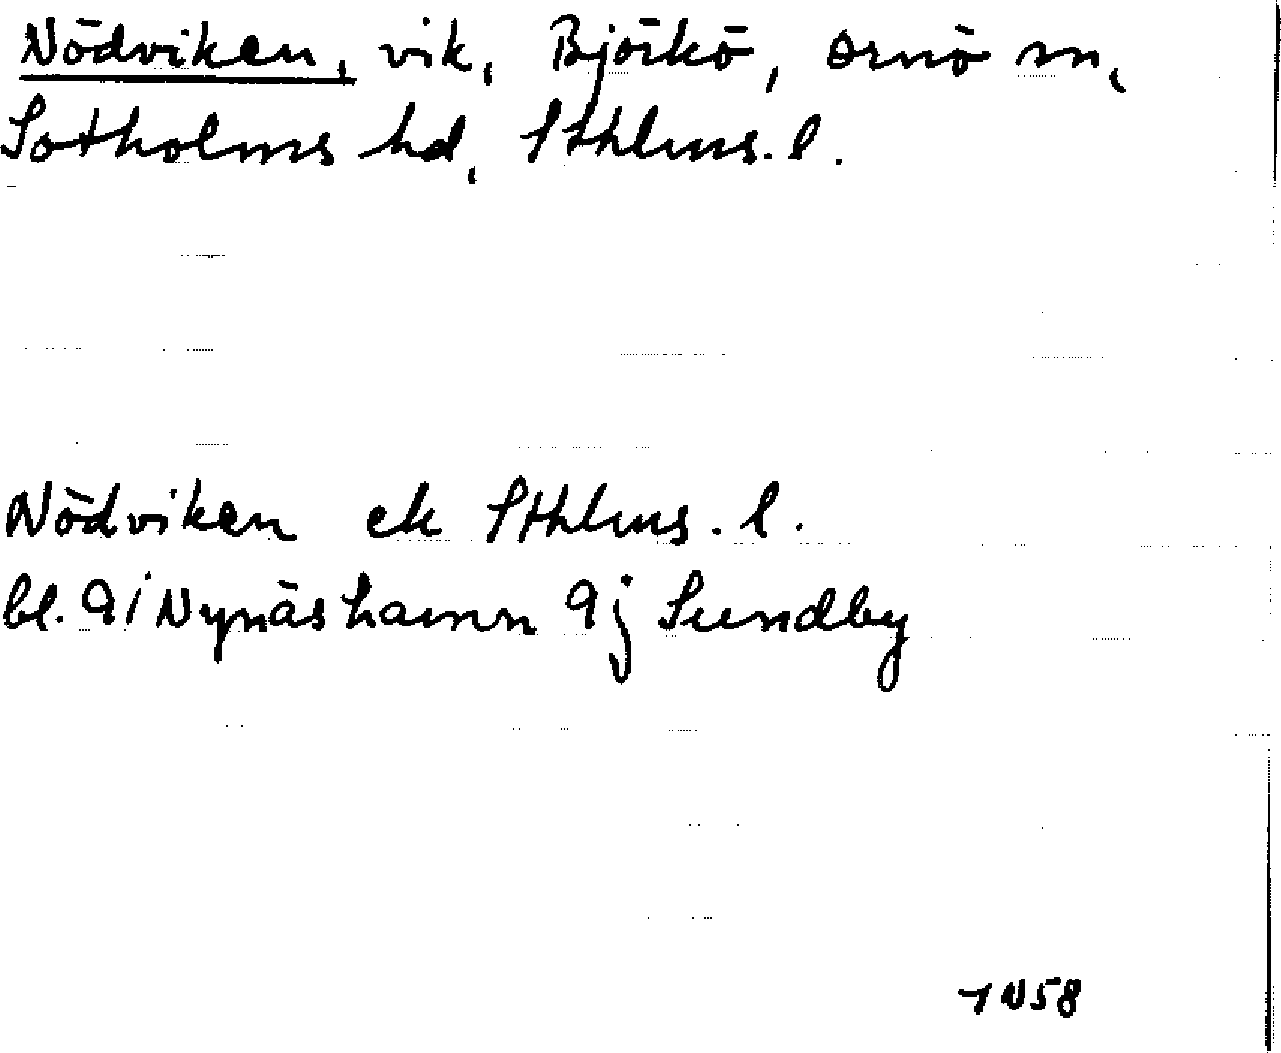 Nödviken, vik, Björkö, Ornö sn,
Sotholms hd, Sthlms. l.
Nödviken ek Sthlms. l.
bl. 9i Nynäshamn 9j Sundby
1958